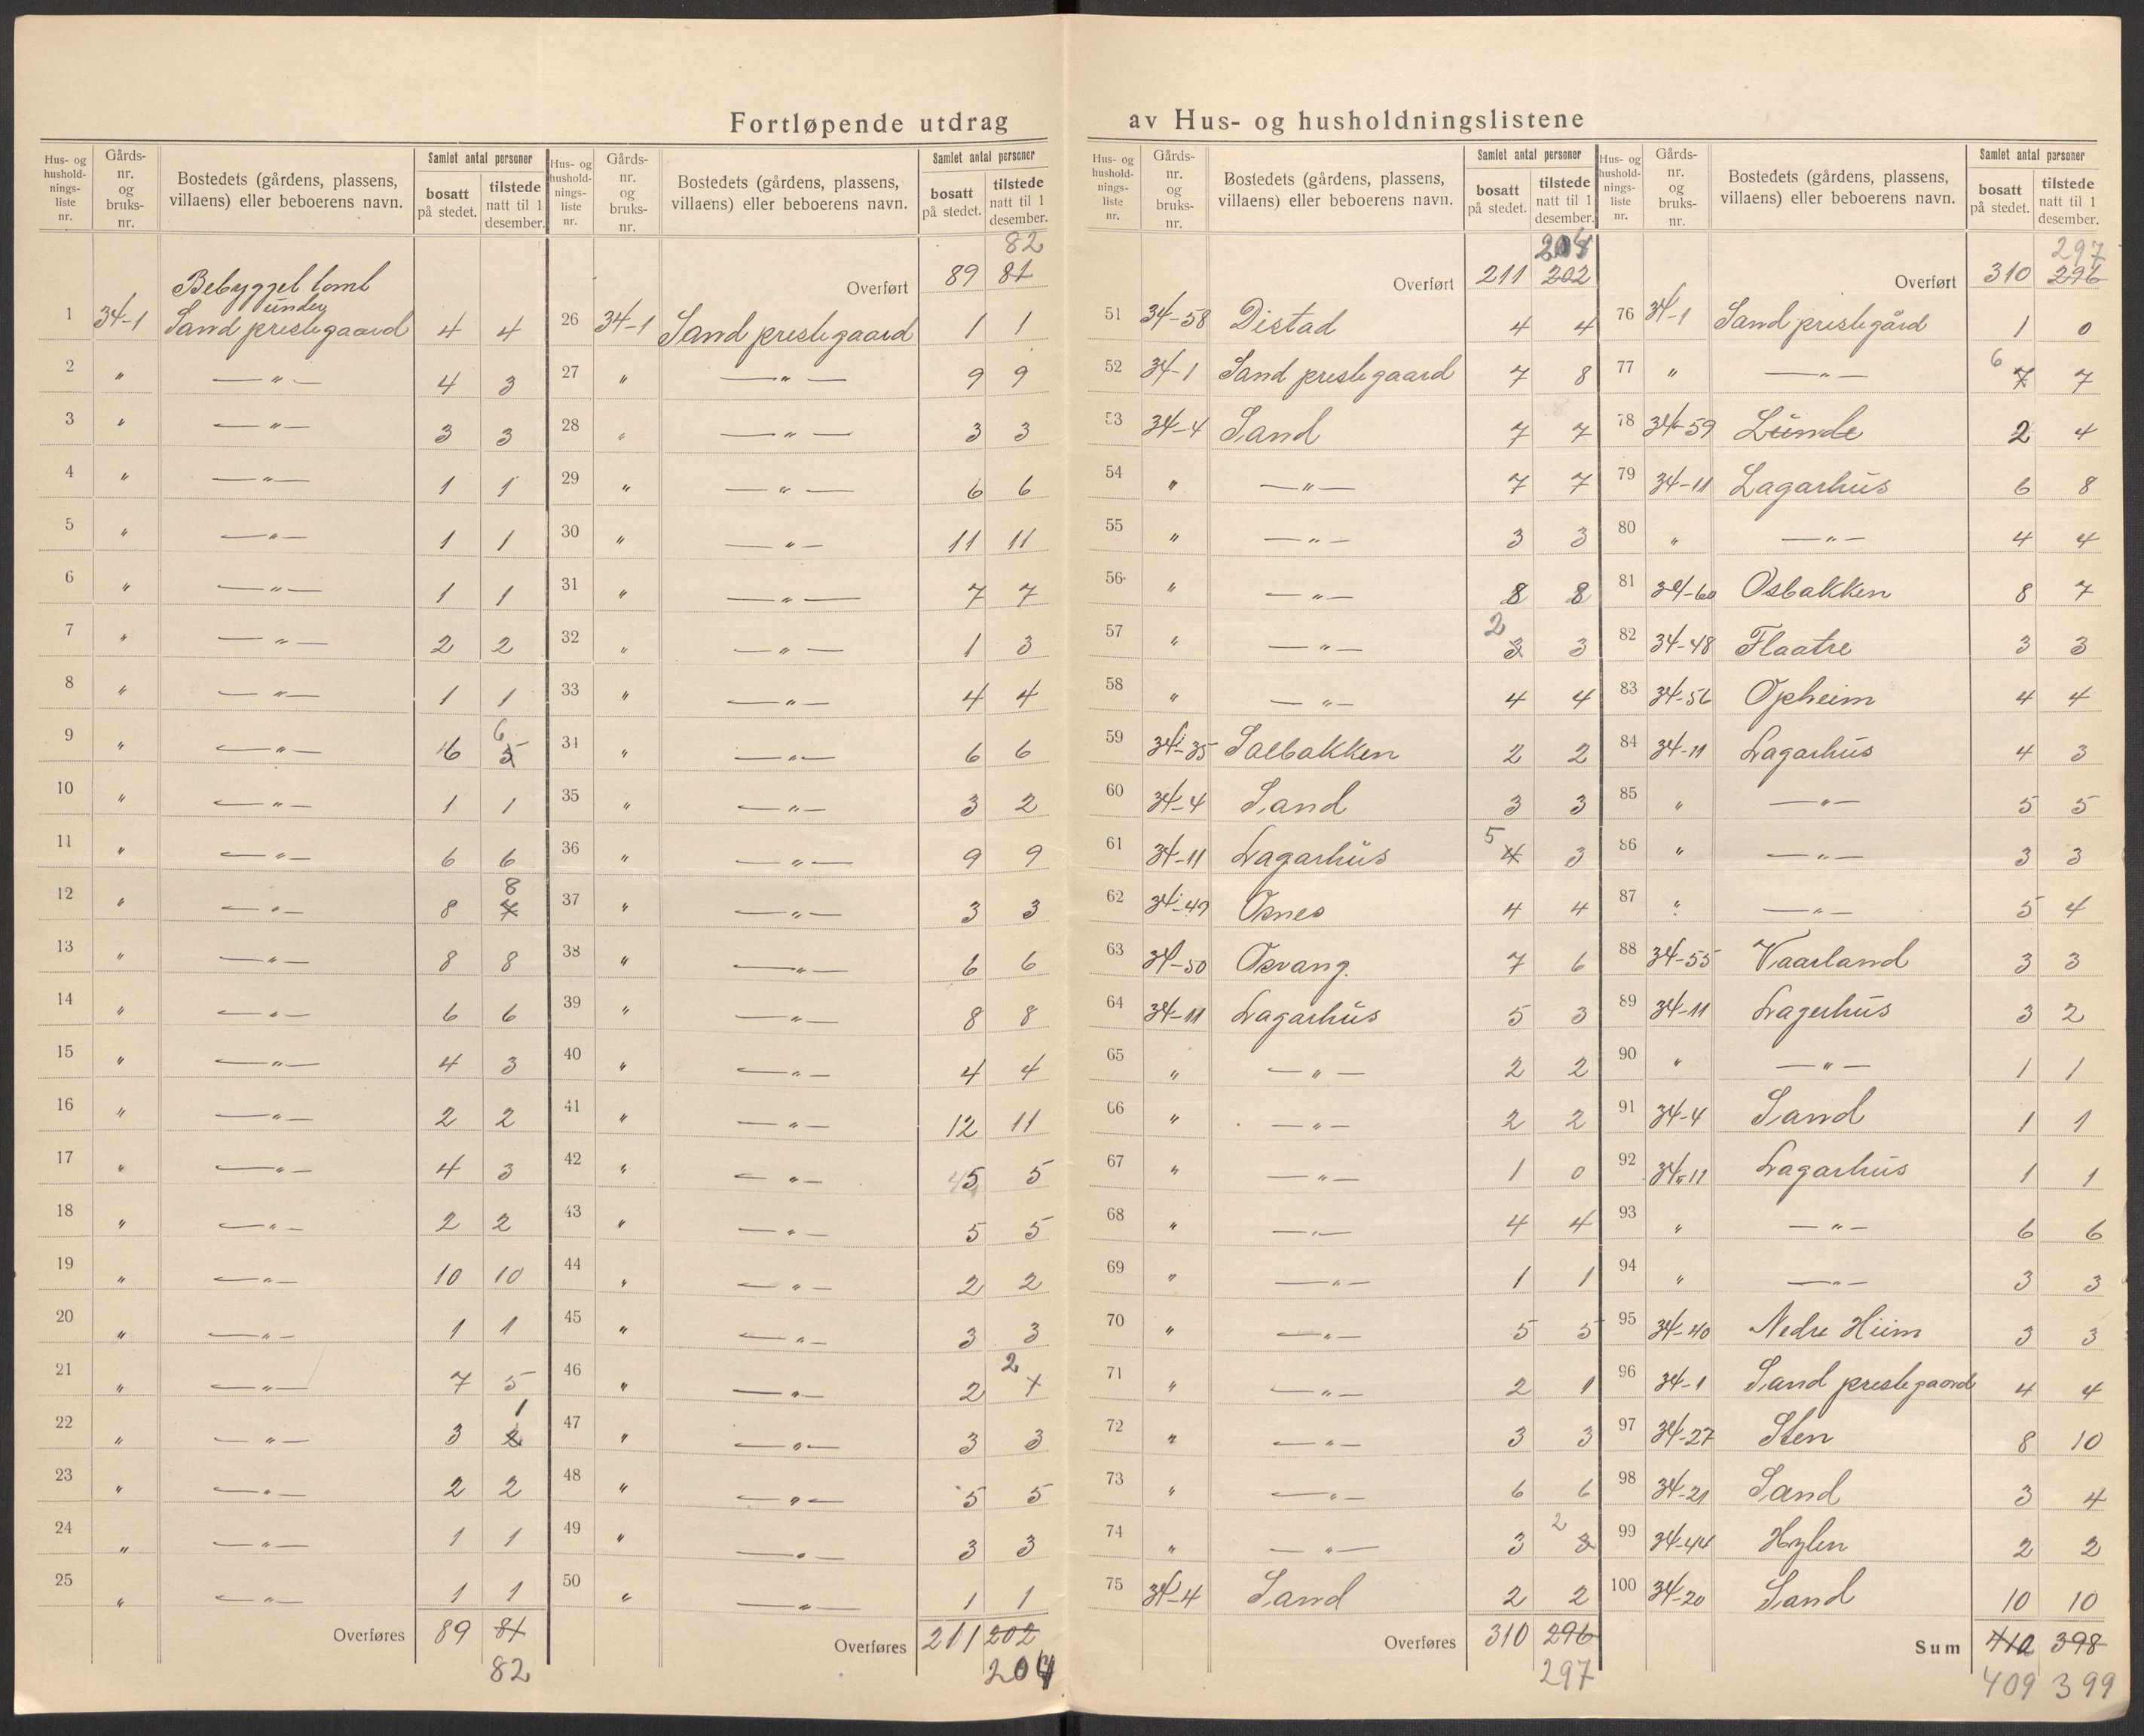 Fortløpende utdrag av Hus- og husholdningslistene
Hus- og hushold-nings-liste nr. | Gårds-nr. og bruks-nr. | Bostedets (gårdens, plassens, villaens) eller beboerens navn. | Samlet antal personer | bosatt på stedet. | tilstede natt til 1 desember.
Bebygget tomt
under
1 34-1 Sand prestegaard 4 4
2 " —"— 4 3
3 " —"— 3 3
4 " —"— 1 1
5 " —"— 1 1
6 " —"— 1 1
7 " —"— 2 2
8 " —"— 1 1
9 " —"— 6 5 6
10 " —"— 1 1
11 " —"— 6 6
12 " —"— 8 7 8
13 " —"— 8 8
14 " —"— 6 6
15 " —"— 4 3
16 " —"— 2 2
17 " —"— 4 3
18 " —"— 2 2
19 " —"— 10 10
20 " —"— 1 1
21 " —"— 7 5
22 " —"— 3 2 1
23 " —"— 2 2
24 " —"— 1 1
25 " —"— 1 1
Overføres 89 81
82
Hus- og hushold-nings-liste nr. | Gårds-nr. og bruks-nr. | Bostedets (gårdens, plassens, villaens) eller beboerens navn. | Samlet antal personer | bosatt på stedet. | tilstede natt til 1 desember.
82
Overført 89 81
26 34-1 Sand prestegaard 1 1
27 " —"— 9 9
28 " —"— 3 3
29 " —"— 6 6
30 " —"— 11 11
31 " —"— 7 7
32 " —"— 1 3
33 " —"— 4 4
34 " —"— 6 6
35 " —"— 3 2
36 " —"— 9 9
37 " —"— 3 3
38 " —"— 6 6
39 " —"— 8 8
40 " —"— 4 4
41 " —"— 12 11
42 " —"— 5 5
43 " —"— 5 5
44 " —"— 2 2
45 " —"— 3 3
46 " —"— 2 1 2
47 " —"— 3 3
48 " —"— 5 5
49 " —"— 3 3
50 " —"— 1 1
Overføres 211 202
204
Hus- og hushold-nings-liste nr. | Gårds-nr. og bruks-nr. | Bostedets (gårdens, plassens, villaens) eller beboerens navn. | Samlet antal personer | bosatt på stedet. | tilstede natt til 1 desember.
204
Overført 211 202
51 34-58 Distad 4 4
52 34-1 Sand prestegaard 7 8
53 34-4 Sand 7 7
54 " —"— 7 7
55 " —"— 3 3
56 " —"— 8 8
57 " —"— 2 3 3
58 " —"— 4 4
59 34-35 Solbakken 2 2
60 34-4 Sand 3 3
61 34-11 Lagarhus 5 4 3
62 34-49 Osnes 4 4
63 34-50 Osvang. 7 6
64 34-11 Lagarhus 5 3
65 " —"— 2 2
66 " —"— 2 2
67 " —"— 1 0
68 " —"— 4 4
69 " —"— 1 1
70 " —"— 5 5
71 " —"— 2 1
72 " —"— 3 3
73 " —"— 6 6
74 " —"— 3 3 2
75 34-4 Sand 2 2
Overføres 310 296
297
Hus- og hushold-nings-liste nr. | Gårds-nr. og bruks-nr. | Bostedets (gårdens, plassens, villaens) eller beboerens navn. | Samlet antal personer | bosatt på stedet. | tilstede natt til 1 desember.
297
Overført 310 296
76 34-1 Sand prestegård 1 0
77 " —"— 6 7 7
78 34-59 Lunde 2 4
79 34-11 Lagarhus 6 8
80 " —"— 4 4
81 34-60 Osbakken 8 7
82 34-48 Flaatre 3 3
83 34-56 Opheim 4 4
84 34-11 Lagarhus 4 3
85 " —"— 5 5
86 " —"— 3 3
87 " —"— 5 4
88 34-55 Vaarland 3 3
89 34-11 Lagerhus 3 2
90 " —"— 1 1
91 34-4 Sand 1 1
92 34-11 Lagarhus 1 1
93 " —"— 6 6
94 " —"— 3 3
95 34-40 Nedre Hiim 3 3
96 34-1 Sand prestegaard 4 4
97 34-27 Sten 8 10
98 34-21 Sand 3 4
99 34-44 Hylen 2 2
100 34-20 Sand 10 10
Sum 410 398
409 399